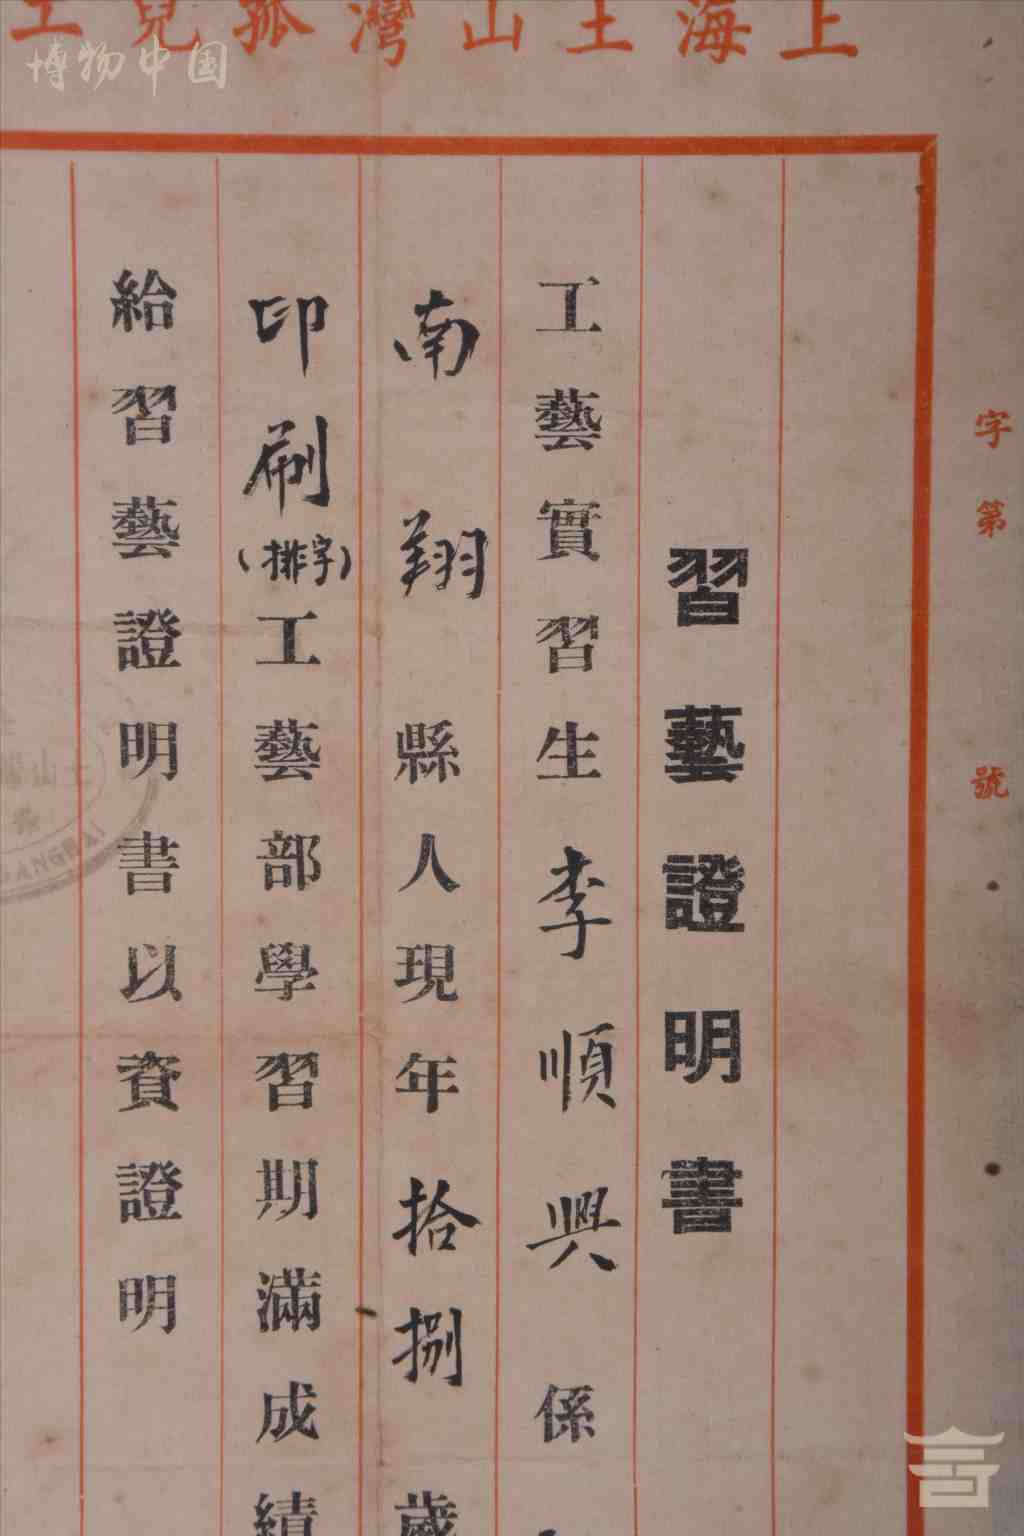 上海土山灣孤兒工
博物中国
字第 號
習藝證明書
工藝實習生李順興係
南翔縣人現年拾捌歲
印刷(排字)工藝部學習期滿成績
給習藝證明書以資證明
土山